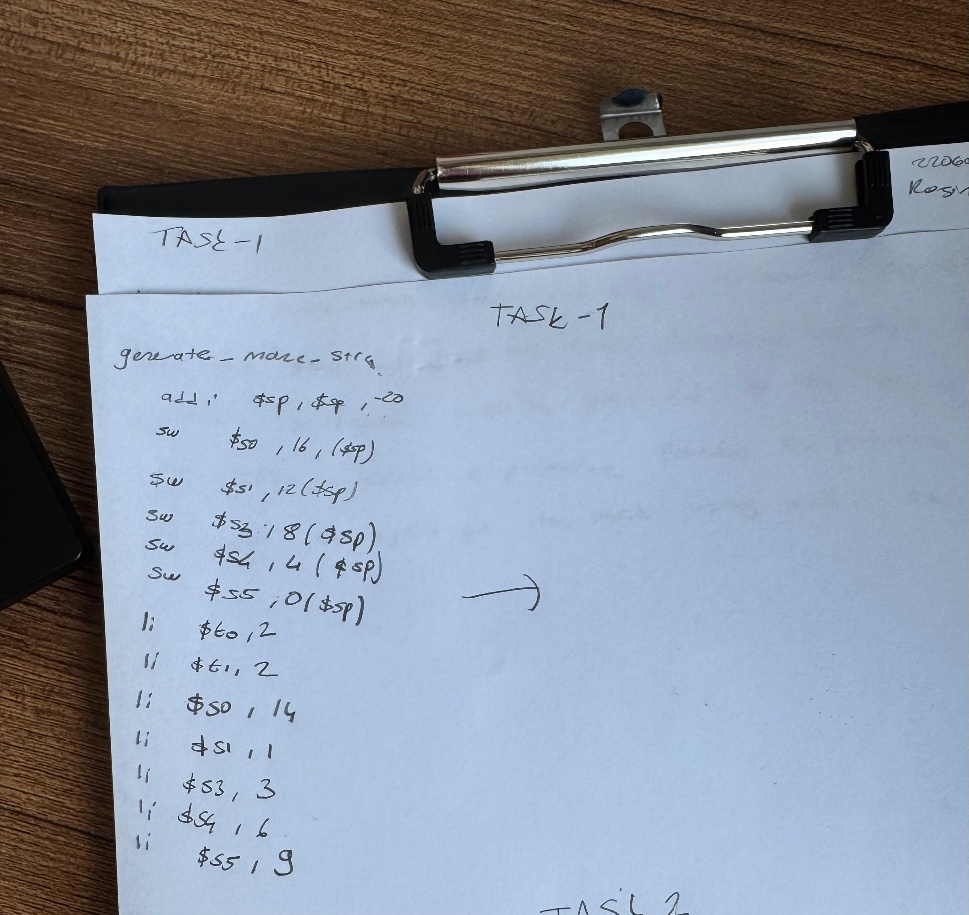 22060
TASK-1
TASK-1
generate_maze_str
addi $sp, $sp, -20
sw $s0, 16, ($sp)
sw $s1, 12($sp)
sw $s3, 8($sp)
sw $s4, 4($sp)
sw $s5, 0($sp)
li $t0, 2
li $t1, 2
li $s0, 14
li $s1, 1
li $s3, 3
li $s4, 6
li $s5, 9
TASK 2